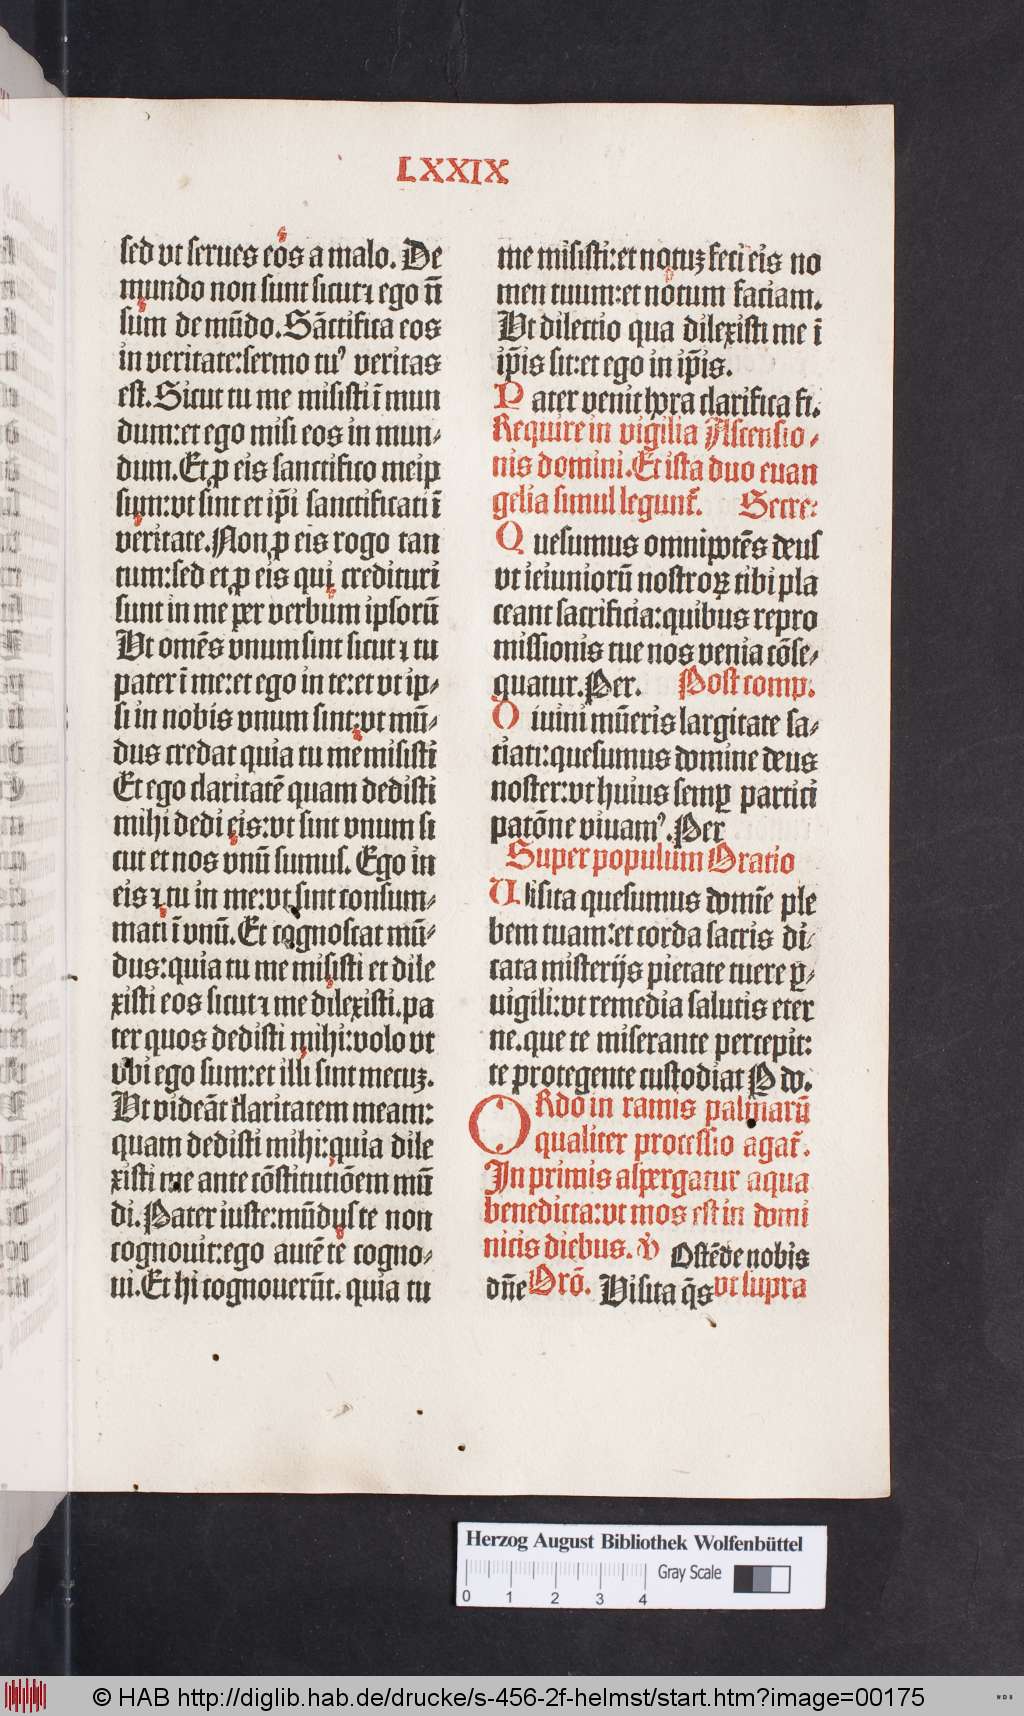 LXXIX
sed vt serues eos a malo. De
mundo non sunt sicut ⁊ ego nō
sum de mūdo. Sāctifica eos
in veritate: sermo tuꝰ veritas
est. Sicut tu me misisti ī mun
dum: et ego misi eos in mun⸗
dum. Et ꝓ eis sanctifico meip
sum: vt sint et ip̄i sanctificati ī
veritate. Non ꝓ eis rogo tan
tum: sed et ꝓ eis qui credituri
sunt in me per verbum ipsorū
Vt omēs vnum sint sicut ⁊ tu
pater ī me: et ego in te: et vt ip⸗
si in nobis vnum sint: vt mū⸗
dus credat quia tu me misisti
Et ego claritatē quam dedisti
mihi dedi eis: vt sint vnum si
cut et nos vnū sumus. Ego in
eis ⁊ tu in me: vt sint consum⸗
mati ī vnū. Et cognoscat mū⸗
dus: quia tu me misisti et dile
xisti eos sicut ⁊ me dilexisti. pa
ter quos dedisti mihi: volo vt
vbi ego sum: et illi sint mecuꝫ.
Vt videāt claritatem meam:
quam dedisti mihi: quia dile
xisti me ante cōstitutiōem mū
di. Pater iuste: mūdus te non
cognouit: ego autē te cogno⸗
ui. Et hi cognouerūt. quia tu
me misisti: et notuꝫ feci eis no
men tuum: et notum faciam.
Vt dilectio qua dilexisti me ī
ip̄is sit: et ego in ip̄is.
Pater venit hora clarifica fi.
Require in vigilia Ascensio⸗
nis domini. Et ista duo euan
gelia simul legunt̄. Secre:
Quesumus omnipotēs deus
vt ieiuniorū nostroꝝ tibi pla
ceant sacrificia: quibus repro
missionis tue nos venia cōse⸗
quatur. Per. Post comp.
Diuini mūeris largitate sa⸗
ciati: quesumus domine deus
noster: vt huius semꝑ partici
patōne viuamꝰ. Per
Super populum Oratio
Visita quesumus domīe ple
bem tuam: et corda sacris di⸗
cata misterijs pietate tuere ꝑ⸗
uigili: vt remedia salutis eter
ne. que te miserante percepit:
te protegente custodiat P do.
ORdo in ramis palmarū
qualiter processio agat̄.
In primis aspergatur aqua
benedicta: vt mos est in domi
nicis diebus. ℣ Ostēde nobis
dn̄e Orō. Visita q̄s vt supra
Herzog August Bibliothek Wolfenbüttel
Gray Scale
0 1 2 3 4
© HAB http://diglib.hab.de/drucke/s-456-2f-helmst/start.htm?image=00175